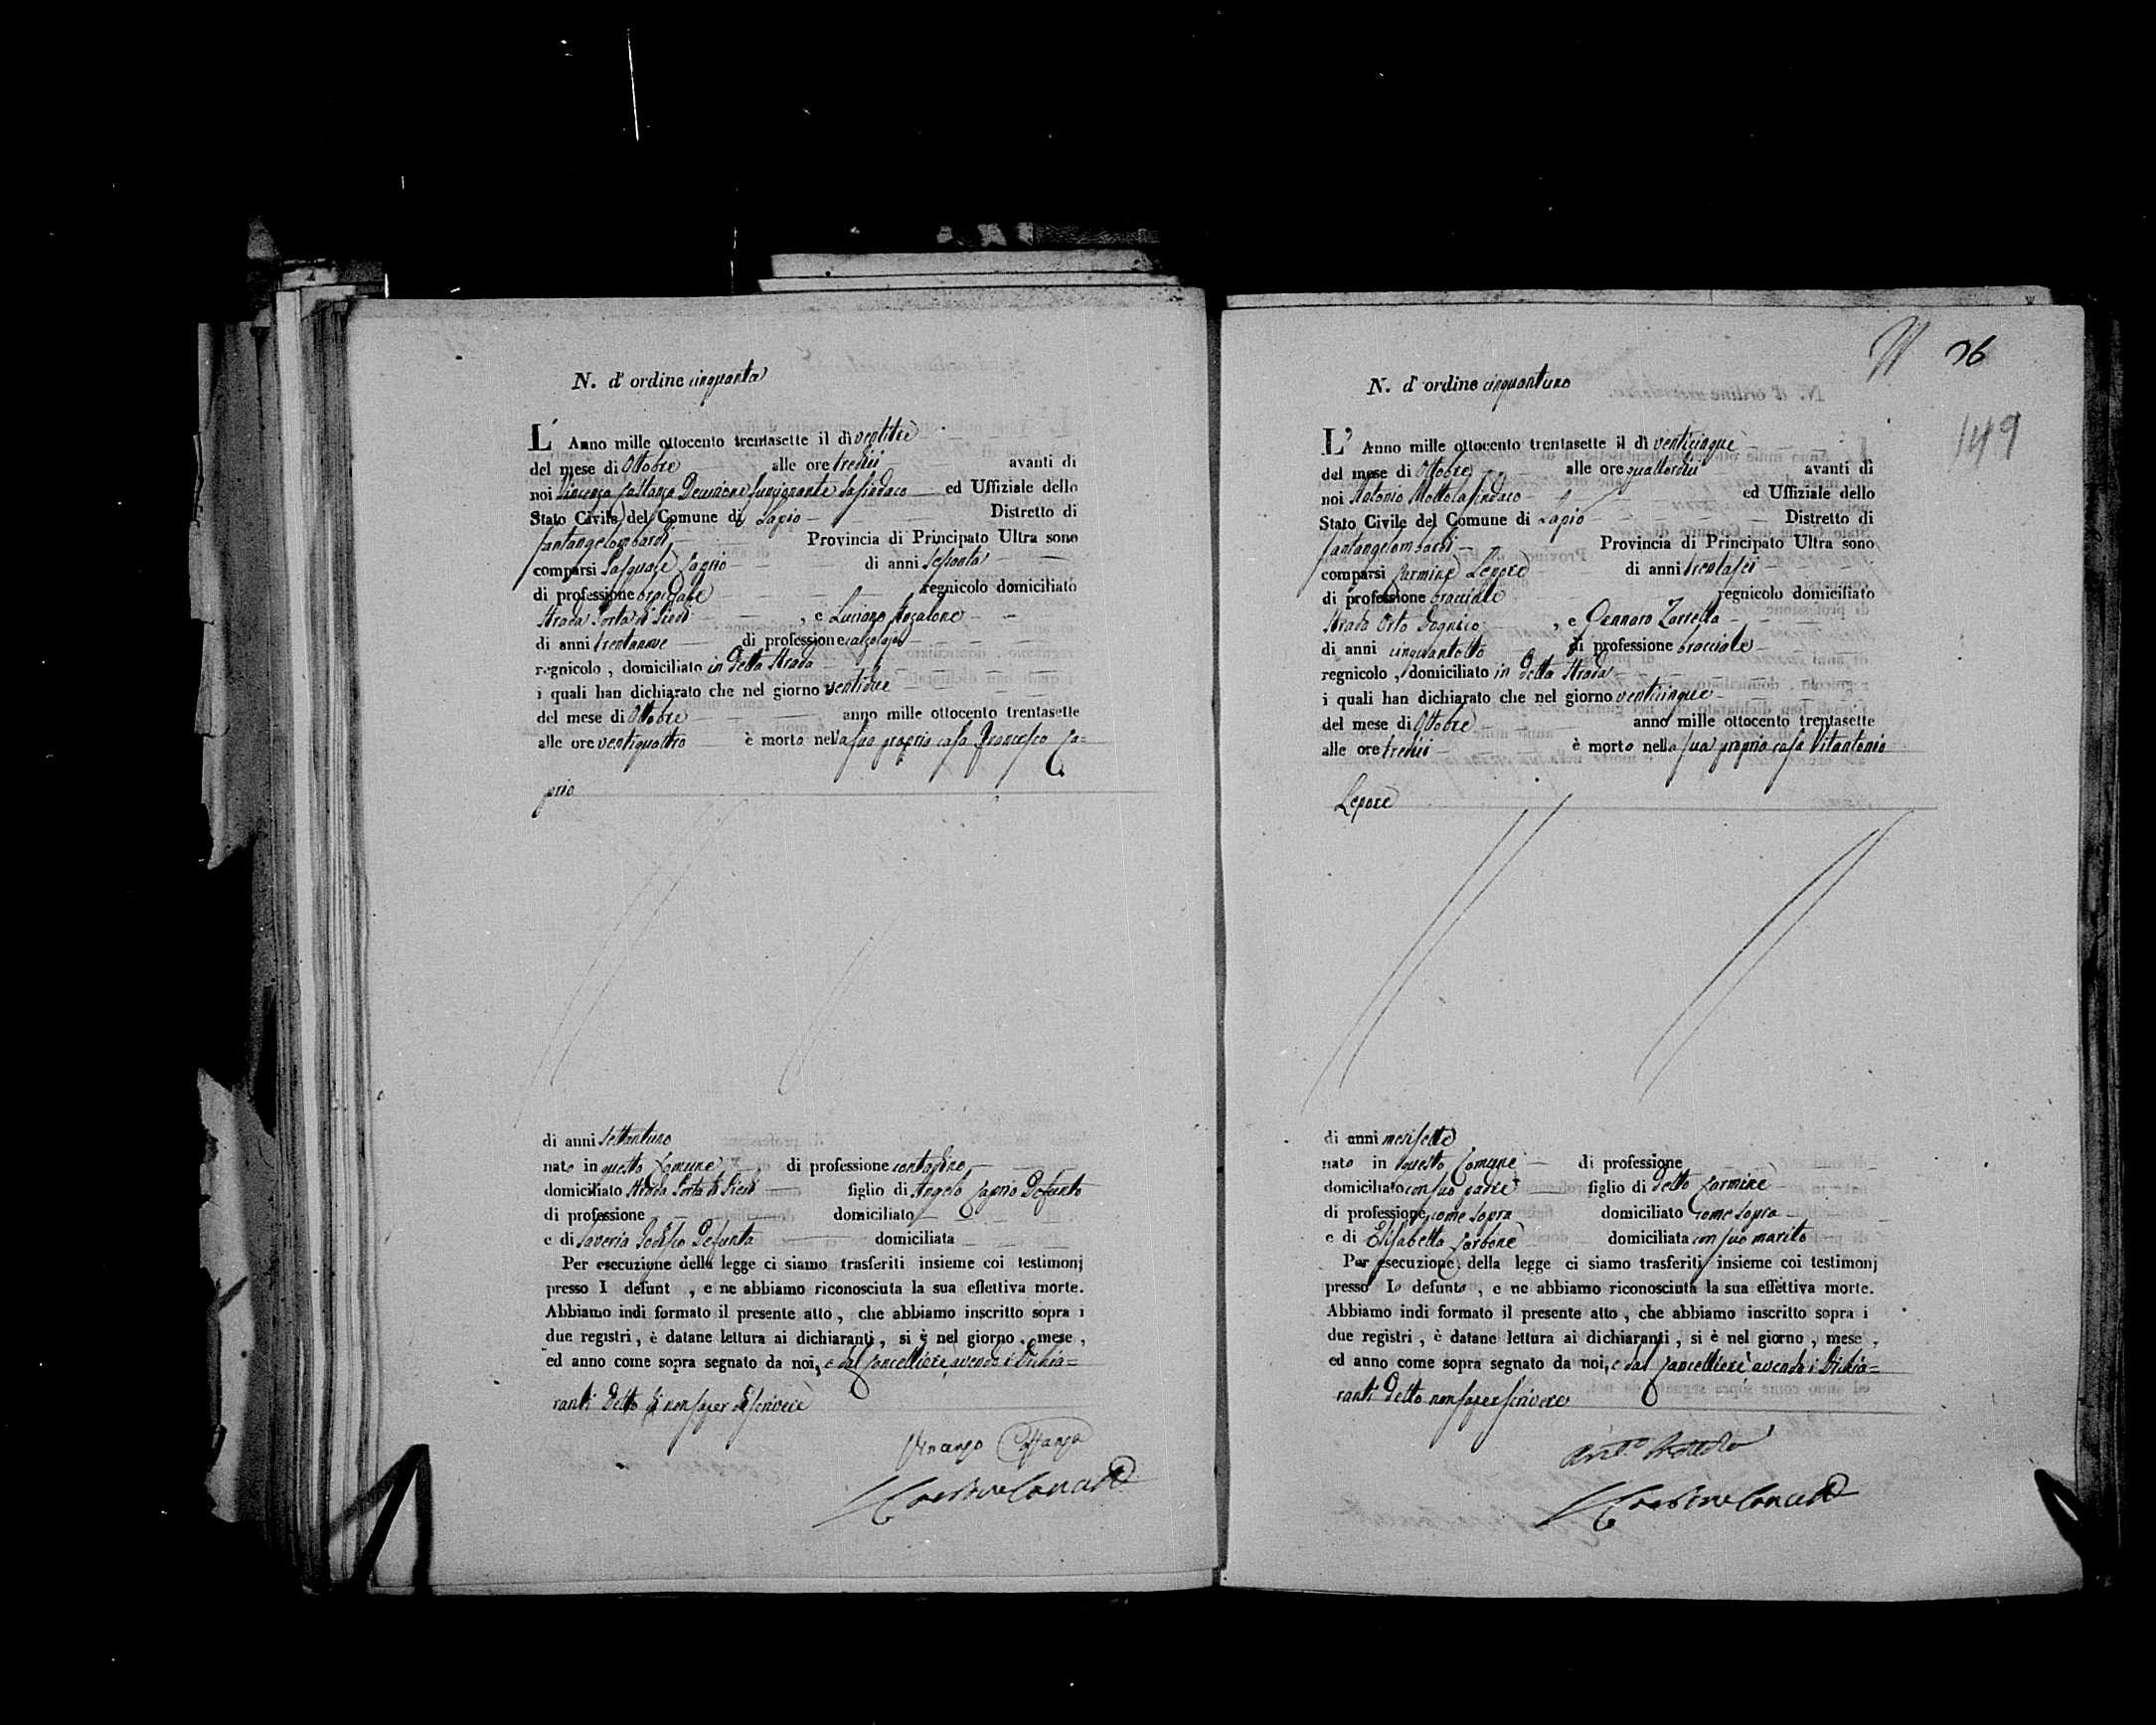 N. d' ordine cinquanta
L' Anno mille ottocento trentasette il dì ventitre
del mese di Ottobre alle ore tredici avanti di
noi Vincenzo Costanza Decurione funzionante da Sindaco ed Uffiziale dello
Stato Civile del Comune di Lapio Distretto di
Santangelombardi Provincia di Principato Ultra sono
comparsi Pasquale Caprio di anni sessanta
di professione bracciale regnicolo domiciliato
Strada Porta di Piedi , e Luciano Anzalone
di anni trentanove di professione calzolajo
regnicolo , domiciliato in detta Strada
i quali han dichiarato che nel giorno ventidue
del mese di Ottobre anno mille ottocento trentasette
alle ore ventiquattro è morto nella sua propria casa Francesco Ca=
prio
di anni settantuno
nato in questo Comune di professione contadino
domiciliato Strada Porta di Piedi figlio di Angelo Caprio Defunto
di professione domiciliato
e di Saveria Defunta domiciliata
Per esecuzione della legge ci siamo trasferiti insieme coi testimonj
presso l defunt , e ne abbiamo riconosciuta la sua effettiva morte.
Abbiamo indi formato il presente atto , che abbiamo inscritto sopra i
due registri , è datane lettura ai dichiaranti , si è nel giorno , mese ,
ed anno come sopra segnato da noi, e dal Cancelliere avendo i Dichia=
ranti detto di non saper di scrivere
Vincenzo Costanza
Carbone Canc
N. d' ordine cinquantuno
36
149
L' Anno mille ottocento trentasette il dì venticinque
del mese di Ottobre alle ore quattordici avanti di
noi Antonio Mottola Sindaco ed Uffiziale dello
Stato Civile del Comune di Lapio Distretto di
Santangelombardi Provincia di Principato Ultra sono
comparsi Carmine Lepore di anni trentasei
di professione bracciale regnicolo domiciliato
Strada Orto , e Gennaro Zarrella
di anni cinquantotto di professione bracciale
regnicolo , domiciliato in detta Strada
i quali han dichiarato che nel giorno venticinque
del mese di Ottobre anno mille ottocento trentasette
alle ore tredici è morto nella sua propria casa Vitantonio
Lepore
di anni mesi sette
nato in questo Comune di professione
domiciliato con suo padre figlio di detto Carmine
di professione come sopra domiciliato come sopra
e di Elisabetta Carbone domiciliata con suo marito
Per esecuzione della legge ci siamo trasferiti insieme coi testimonj
presso lo defunto , e ne abbiamo riconosciuta la sua effettiva morte.
Abbiamo indi formato il presente atto , che abbiamo inscritto sopra i
due registri , è datane lettura ai dichiaranti , si è nel giorno , mese ,
ed anno come sopra segnato da noi, e dal Cancelliere avendo i Dichia=
ranti detto non saper scrivere
Ant.o Mottola
Carbone Canc